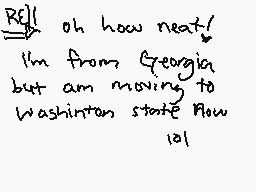 RE|| oh how neat!
I'm from Georgia
but am moving to
washinton state now
lol